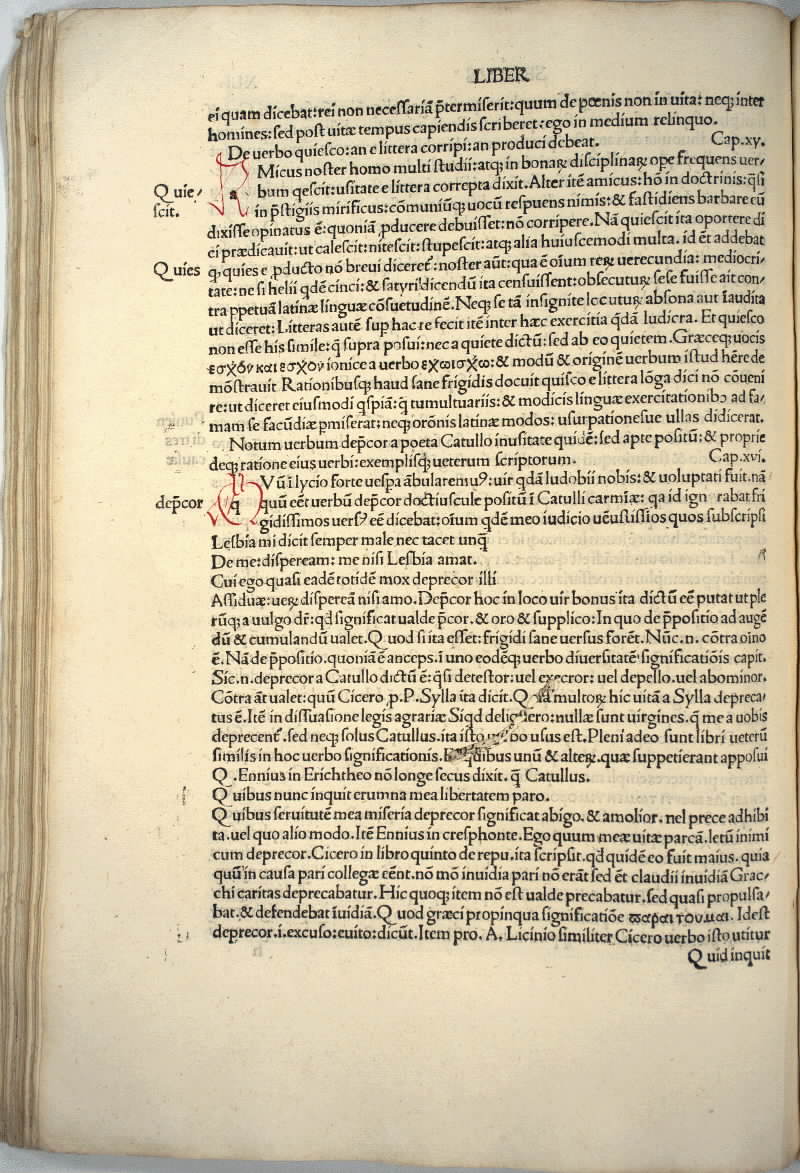 LIBER
ei quam dicebat: rei non necessariā p̄termiserit: quum de pœnis non in uita: neq; inter
homines: sed post uitæ tempus capiendis scriberet: ego in medium relinquo.
De uerbo quiesco: an e littera corripi: an produci debeat. Cap.xv.
Quie/
scit.
a Micus noster homo multi studii: atq; in bonaꝝ disciplinaꝝ ope frequens uer/
bum qescit: usitate e littera correpta dixit. Alter itē amicus: hō in doctrinis: q̄si
in p̄stigiis mirificus: cōmuniūq; uocū respuens nimis: & fastidiens barbare eū
dixisse opinatus ē: quoniā ꝓducere debuisset: nō corripere. Nā quiescit ita oportere di
ci prædicauit: ut calescit: nitescit: stupescit: atq; alia huiuscemodi multa. id ēt addebat
Quies
q, quies e ꝓducto nō breui diceret᷑: noster aūt: qua ē oīum reꝝ uerecundia: mediocri/
tate: ne si helii qdē cinci: & satyri dicendū ita censuissent: obsecutuꝝ sese fuisse ait con/
tra ppetuā latinæ linguæ cōsuetudinē. Neq; se tā insignite locutuꝝ absona aut īaudita
ut diceret: Litteras autē sup hac re fecit itē inter hæc exercitia q̄dā ludicra. Et quiesco
non esse his simile: q̄ supra posui: nec a quiete dictū: sed ab eo quietem. Græceq; uocis
εσχόν και εσχον ionice a uerbo εχωισχω: & modū & originē uerbum istud hēre de
mōstrauit. Rationibusq; haud sane frigidis docuit quisco e littera lōga dici nō cōueni
re: ut diceret eiusmodi q̄spiā: q̄ tumultuariis: & modicis linguæ exercitationibꝰ ad fa/
mam se facūdiæ pmiserat: neq; orōnis latinæ modos: usurpationesue ullas didicerat.
Notum uerbum dep̄cor a poeta Catullo inusitate quidē: sed apte positū: & proprie
deq; ratione eius uerbi: exemplisq; ueterum scriptorum. Cap.xvi.
dep̄cor
q Vū ī lycio forte uespa ābularemuꝰ: uir qdā ludobii nobis: & uoluptati fuit. nā
quū eēt uerbū dep̄cor doctiuscule positū ī Catulli carmīæ: qa id ign rabat fri
gidissimos uersꝰ eē dicebat: oīum qdē meo iudicio uēustissios quos subscripsi
Lesbia mi dicit semper male nec tacet unq̄
De me: dispeream: me nisi Lesbia amat.
Cui ego quasi eadē totidē mox deprecor illi
Assiduæ: ueꝝ dispereā nisi amo. Dep̄cor hoc in loco uir bonus ita dictū eē putat ut ple
rūq; a uulgo dr̄: qd significat ualde p̄cor. & oro & supplico: In quo de p̄positio ad augē
dū & cumulandū ualet. Quod si ita esset: frigidi sane uersus forēt. Nūc.n. cōtra oīno
ē. Nā de p̄positio. quoniā ē anceps. ī uno eodēq; uerbo diuersitatē significatiōis capit.
Sic.n. deprecor a Catullo dictū ē: q̄si detestor: uel execror: uel depello. uel abominor.
Cōtra āt ualet: quū Cicero .p.P.Sylla ita dicit. Q multoꝝ hic uitā a Sylla depreca/
tus ē. Itē in dissuasione legis agrariæ Siqd ero: nullæ sunt uirgines. q̄ me a uobis
deprecent᷑. sed neq; solus Catullus. ita isto bo usus est. Pleni adeo sunt libri ueterū
similis in hoc uerbo significationis. qdibus unū & alteꝝ. quæ suppetierant apposui
Q.Ennius in Erichtheo nō longe secus dixit. q̄ Catullus.
Quibus nunc inquit erumna mea libertatem paro.
Quibus seruitutē mea miseria deprecor significat abigo. & amolior. nel prece adhibi
ta. uel quo alio modo. Itē Ennius in cresphonte. Ego quum meæ uitæ parcā. letū inimi
cum deprecor. Cicero in libro quinto de repu. ita scripsit. qd quidē eo fuit maius. quia
quū in causa pari collegæ eēnt. nō mō inuidia pari nō erāt sed ēt claudii inuidiā Grac/
chi caritas deprecabatur. Hic quoq; item nō est ualde precabatur. sed quasi propulsa/
bat. & defendebat īuidiā. Quod græci propinqua significatiōe παραιτουμαι. Idest
deprecor.i.excuso: euito: dicūt. Item pro. A. Licinio similiter Cicero uerbo isto utitur
Quid inquit